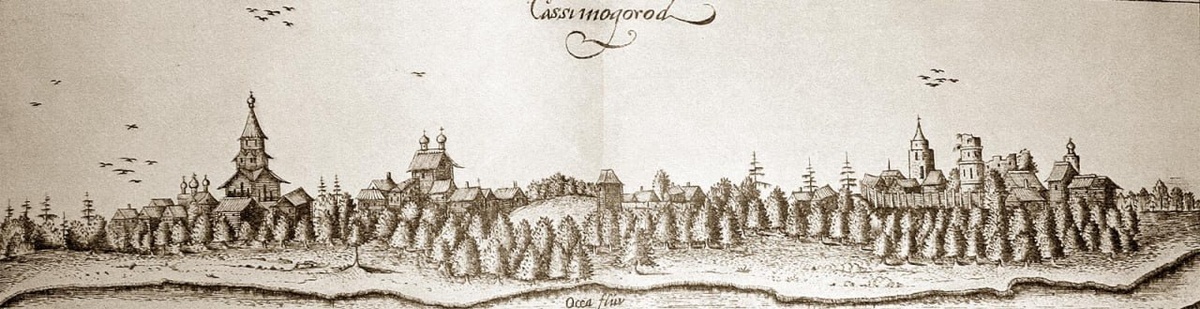 Cassimogorod
Occa fluv